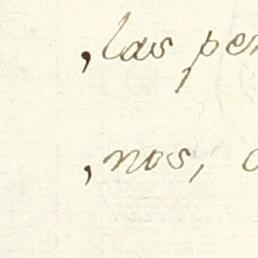 ,las per
,nos,